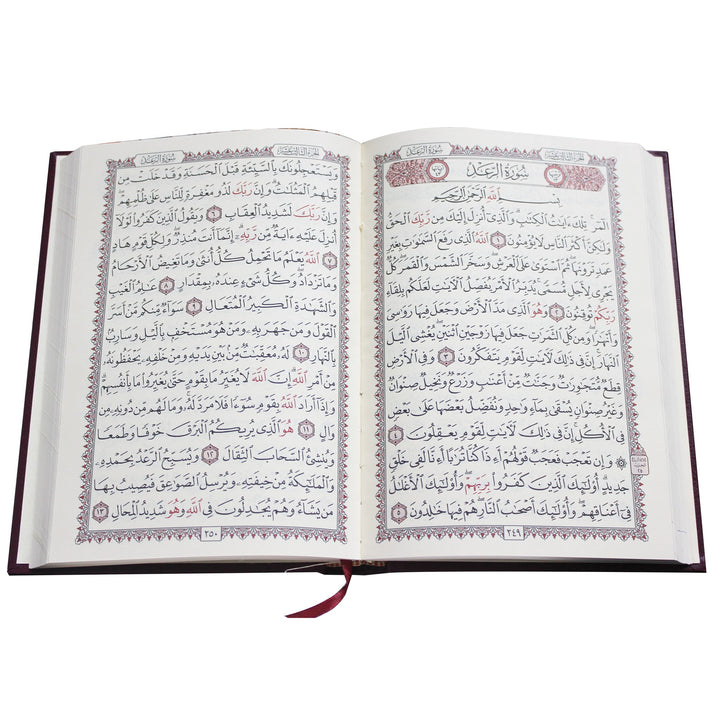 سُورَةُ الرَّعْدِ
الجُزْءُ الثَّالِثَ عَشَرَ
سُورَةُ الرَّعْدِ
بِسْمِ اللَّهِ الرَّحْمَٰنِ الرَّحِيمِ
الٓمٓر ۚ تِلْكَ ءَايَٰتُ الْكِتَٰبِ ۗ وَالَّذِىٓ أُنزِلَ إِلَيْكَ مِن رَّبِّكَ الْحَقُّ
وَلَٰكِنَّ أَكْثَرَ النَّاسِ لَا يُؤْمِنُونَ ١ اللَّهُ الَّذِى رَفَعَ السَّمَٰوَٰتِ بِغَيْرِ
عَمَدٍ تَرَوْنَهَا ۖ ثُمَّ اسْتَوَىٰ عَلَى الْعَرْشِ ۖ وَسَخَّرَ الشَّمْسَ وَالْقَمَرَ ۖ كُلٌّ
يَجْرِى لِأَجَلٍ مُّسَمًّى ۚ يُدَبِّرُ الْأَمْرَ يُفَصِّلُ الْءَايَٰتِ لَعَلَّكُم بِلِقَآءِ
رَبِّكُمْ تُوقِنُونَ ٢ وَهُوَ الَّذِى مَدَّ الْأَرْضَ وَجَعَلَ فِيهَا رَوَٰسِىَ
وَأَنْهَٰرًا ۖ وَمِن كُلِّ الثَّمَرَٰتِ جَعَلَ فِيهَا زَوْجَيْنِ اثْنَيْنِ ۖ يُغْشِى الَّيْلَ
النَّهَارَ ۚ إِنَّ فِى ذَٰلِكَ لَءَايَٰتٍ لِّقَوْمٍ يَتَفَكَّرُونَ ٣ وَفِى الْأَرْضِ
قِطَعٌ مُّتَجَٰوِرَٰتٌ وَجَنَّٰتٌ مِّنْ أَعْنَٰبٍ وَزَرْعٌ وَنَخِيلٌ صِنْوَانٌ
وَغَيْرُ صِنْوَانٍ يُسْقَىٰ بِمَآءٍ وَٰحِدٍ وَنُفَضِّلُ بَعْضَهَا عَلَىٰ بَعْضٍ
فِى الْأُكُلِ ۚ إِنَّ فِى ذَٰلِكَ لَءَايَٰتٍ لِّقَوْمٍ يَعْقِلُونَ ٤
۞ وَإِن تَعْجَبْ فَعَجَبٌ قَوْلُهُمْ أَءِذَا كُنَّا تُرَٰبًا أَءِنَّا لَفِى خَلْقٍ
جَدِيدٍ ۗ أُو۟لَٰٓئِكَ الَّذِينَ كَفَرُوا۟ بِرَبِّهِمْ ۖ وَأُو۟لَٰٓئِكَ الْأَغْلَٰلُ
فِىٓ أَعْنَاقِهِمْ ۖ وَأُو۟لَٰٓئِكَ أَصْحَٰبُ النَّارِ ۖ هُمْ فِيهَا خَٰلِدُونَ ٥
٢٤٩
سُورَةُ الرَّعْدِ
الجُزْءُ الثَّالِثَ عَشَرَ
وَيَسْتَعْجِلُونَكَ بِالسَّيِّئَةِ قَبْلَ الْحَسَنَةِ وَقَدْ خَلَتْ مِن
قَبْلِهِمُ الْمَثُلَٰتُ ۗ وَإِنَّ رَبَّكَ لَذُو مَغْفِرَةٍ لِّلنَّاسِ عَلَىٰ ظُلْمِهِمْ ۖ
وَإِنَّ رَبَّكَ لَشَدِيدُ الْعِقَابِ ٦ وَيَقُولُ الَّذِينَ كَفَرُوا۟ لَوْلَآ
أُنزِلَ عَلَيْهِ ءَايَةٌ مِّن رَّبِّهِۦٓ ۗ إِنَّمَآ أَنتَ مُنذِرٌ ۖ وَلِكُلِّ قَوْمٍ هَادٍ
٧ اللَّهُ يَعْلَمُ مَا تَحْمِلُ كُلُّ أُنثَىٰ وَمَا تَغِيضُ الْأَرْحَامُ
وَمَا تَزْدَادُ ۖ وَكُلُّ شَىْءٍ عِندَهُۥ بِمِقْدَارٍ ٨ عَٰلِمُ الْغَيْبِ
وَالشَّهَٰدَةِ الْكَبِيرُ الْمُتَعَالِ ٩ سَوَآءٌ مِّنكُم مَّنْ أَسَرَّ
الْقَوْلَ وَمَن جَهَرَ بِهِۦ وَمَنْ هُوَ مُسْتَخْفٍۭ بِالَّيْلِ وَسَارِبٌۢ
بِالنَّهَارِ ١٠ لَهُۥ مُعَقِّبَٰتٌ مِّنۢ بَيْنِ يَدَيْهِ وَمِنْ خَلْفِهِۦ يَحْفَظُونَهُۥ
مِنْ أَمْرِ اللَّهِ ۗ إِنَّ اللَّهَ لَا يُغَيِّرُ مَا بِقَوْمٍ حَتَّىٰ يُغَيِّرُوا۟ مَا بِأَنفُسِهِمْ ۗ
وَإِذَآ أَرَادَ اللَّهُ بِقَوْمٍ سُوٓءًا فَلَا مَرَدَّ لَهُۥ ۚ وَمَا لَهُم مِّن دُونِهِۦ مِن
وَالٍ ١١ هُوَ الَّذِى يُرِيكُمُ الْبَرْقَ خَوْفًا وَطَمَعًا
وَيُنشِئُ السَّحَابَ الثِّقَالَ ١٢ وَيُسَبِّحُ الرَّعْدُ بِحَمْدِهِۦ
وَالْمَلَٰٓئِكَةُ مِنْ خِيفَتِهِۦ وَيُرْسِلُ الصَّوَٰعِقَ فَيُصِيبُ بِهَا
مَن يَشَآءُ وَهُمْ يُجَٰدِلُونَ فِى اللَّهِ وَهُوَ شَدِيدُ الْمِحَالِ ١٣
٢٥٠